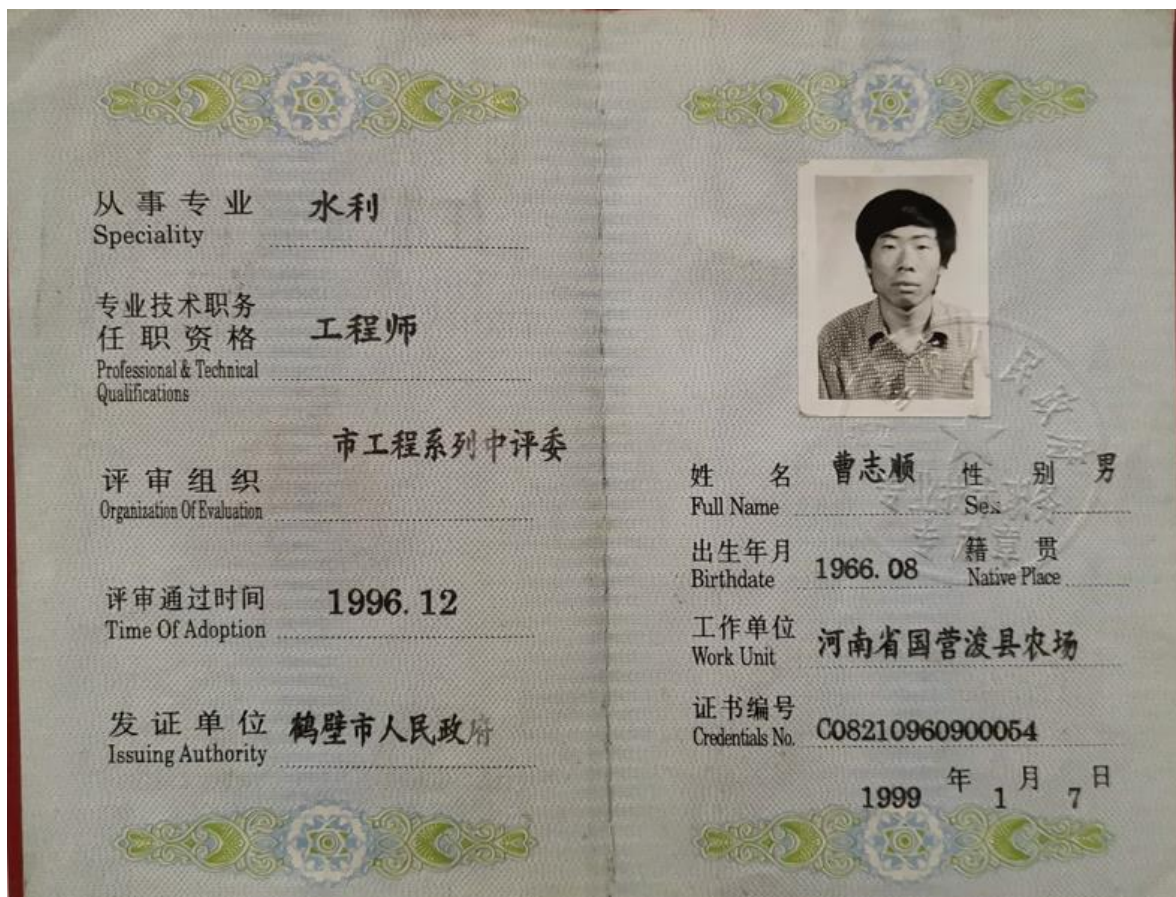 从事专业 水利
Speciality
专业技术职务
任职资格 工程师
Professional & Technical
Qualifications
市工程系列中评委
评审组织
Organization Of Evaluation
评审通过时间 1996.12
Time Of Adoption
发证单位 鹤壁市人民政府
Issuing Authority
姓名 曹志顺 性别 男
Full Name Sex
出生年月 1966.08 籍贯
Birthdate Native Place
工作单位 河南省国营浚县农场
Work Unit
证书编号 C08210960900054
Credentials No.
1999年1月7日